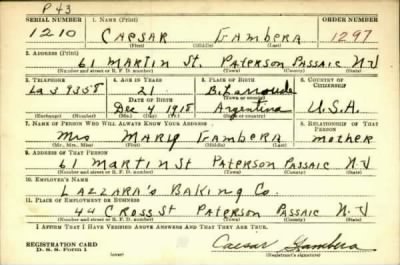 P 43
SERIAL NUMBER 1. NAME (Print) ORDER NUMBER
1210 CAESAR GAMBERA 1297
(First) (Middle) (Last)
2. ADDRESS (Print)
61 MARTIN St. PATERSON PASSAIC N J
(Number and street or R. F. D. number) (Town) (County) (State)
3. TELEPHONE 4. AGE IN YEARS 5. PLACE OF BIRTH 6. COUNTRY OF CITIZENSHIP
La 3 9358 21
DATE OF BIRTH (Town or county)
Dec 4 1918 Argentina U.S.A.
(Exchange) (Number) (Mo.) (Day) (Yr.) (State or country)
7. NAME OF PERSON WHO WILL ALWAYS KNOW YOUR ADDRESS 8. RELATIONSHIP OF THAT PERSON
Mrs MARY GAMBERA mother
(Mr., Mrs., Miss) (First) (Middle) (Last)
9. ADDRESS OF THAT PERSON
61 MARTIN St PATERSON PASSAIC N J
(Number and street or R. F. D. number) (Town) (County) (State)
10. EMPLOYER'S NAME
LAZZARA'S BAKING Co.
11. PLACE OF EMPLOYMENT OR BUSINESS
44 CROSS St PATERSON PASSAIC N. J
(Number and street or R. F. D. number) (Town) (County) (State)
I AFFIRM THAT I HAVE VERIFIED ABOVE ANSWERS AND THAT THEY ARE TRUE.
REGISTRATION CARD Caesar Gambera
D. S. S. Form 1 (over) (Registrant's signature)